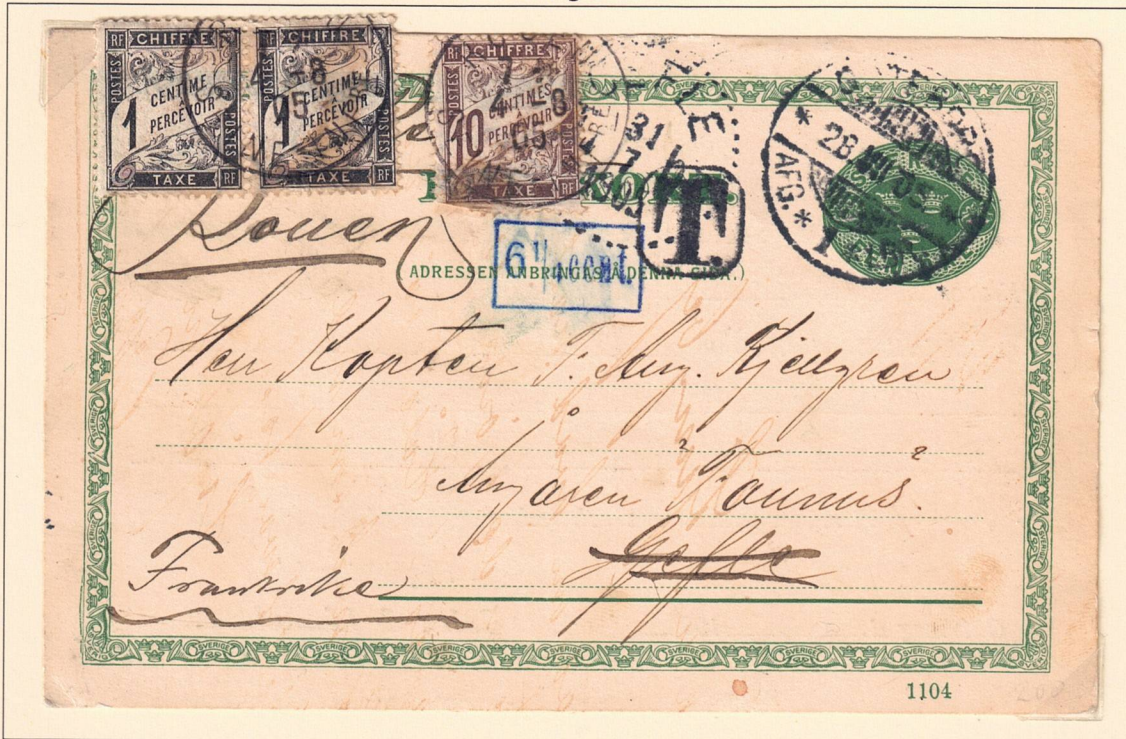 RF CHIFFRE
POSTES
1 CENTIME
PERCEVOIR
TAXE RF
CHIFFRE
1 CENTIME
PERCEVOIR
POSTES
TAXE RF
RF CHIFFRE
POSTES
10 CENTIMES
PERCEVOIR
TAXE
4 -8
05
4 -8
05
31
7
T.
28 VII 05
AFG.
Rouen
(ADRESSEN ANBRINGAS Å DENNA SIDA.)
Herr Kapten F. Aug. Kjellgren
Ångaren "Taunus".
Gefle
Frankrike
SVERIGE
1104